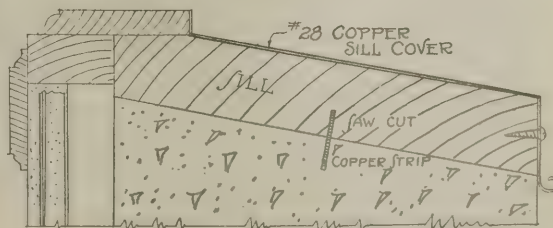 #28 COPPER
SILL COVER
SILL
SAW CUT
COPPER STRIP